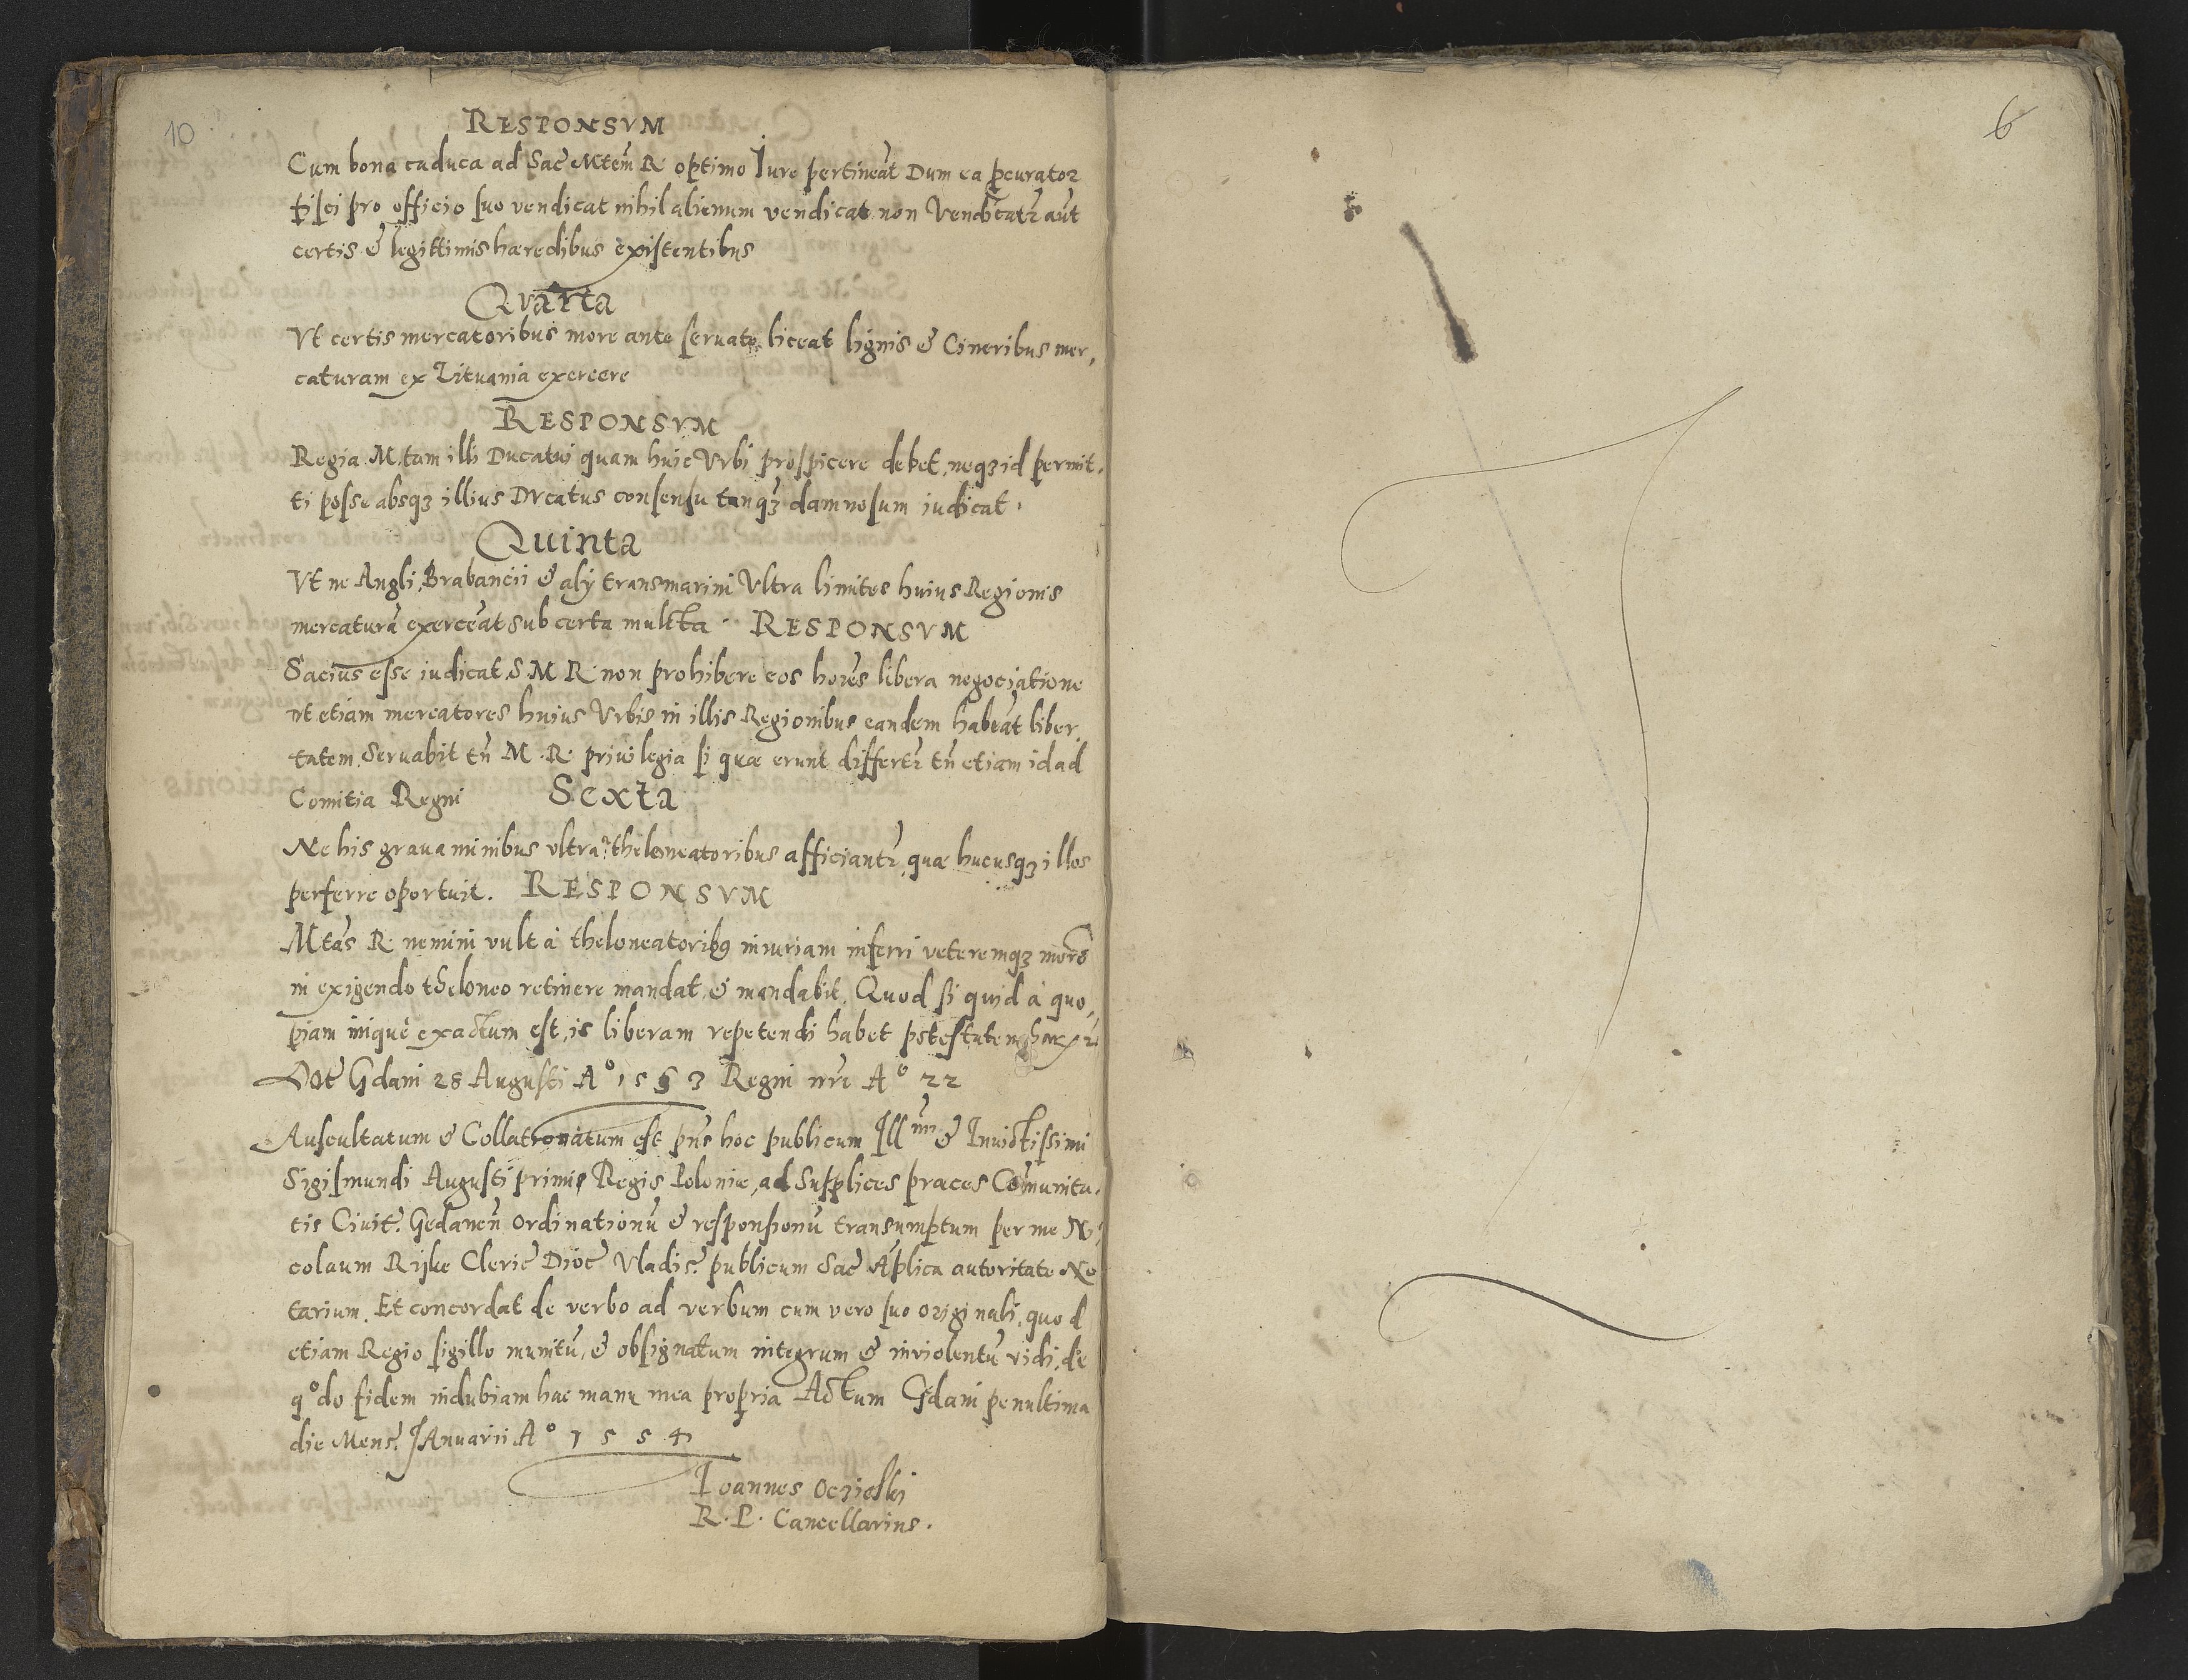 10
RESPONSVM
Cum bona caduca ad Sac̃ Mtem̃ R. optimo Iure pertineãt Dum ea ꝑcurator
fisci pro officio suo vendicat nihil alienum vendicat non Vendicatr̃ aũt
certis & legittimis hæredibus existentibus
Qvarta
Vt certis mercatoribus more ante seruato liceat lignis & Cineribus mer,
caturam ex Lituania exercere
RESPONSVM
Regia M. tam illi Ducatui quam huic Vrbi prospicere debet, neqꝫ id permit,
ti posse absqꝫ illius Dvcatus consensu tanqꝫ damnosum iudicat.
Quinta
Vt ne Angli, Brabancii & alij transmarini Vltra limites huius Regionis
mercaturã exerceãt sub certa multta. RESPONSVM
Sacius esse iudicat S M R. non prohibere eos hoĩes libera negociatione
vt etiam mercatores huius Vrbis in illis Regionibus eandem habeãt liber,
tatem. Servabit tñ M. R. privilegia si quæ erunt differtr̃ tñ etiam id ad
Comitia Regni Sexta
Ne his grauaminibus vltra à theloneatoribus afficiantr̃, quæ hucusqꝫ illos
perferre oportuit. RESPONSVM
Mtas̃ R. nemini vult à theloneatoribꝰ iniuriam inferri veteremqꝫ morẽ
in exigendo theloneo retinere mandat, & mandabit. Quod si quid à quo,
piam iniquè exactum est, is liberam repetendi habet potestatem
Dat̃ Gdani 28 Augusti A° 1553 Regni nr̃i A° 22
Auscultatum & Collationatum est pñs hoc publicum Ill ͫͫ & Inuictissimi
Sigismundi Augusti primi Regis Poloniæ, ad Supplices præces Cõmunita,
tis Civit̃. Gedaneñ Ordinationũ & responsionũ transumptum per me Ni,
colaum Rijke Cleric̃ Dioc̃ Vladis̃. publicum Sac̃ Aplica autoritate No
tarium. Et concordat de verbo ad verbum cum vero suo originali, quod
etiam Regio sigillo munitũ, & obsignatum integrum & inviolentũ vidi, de
q°do fidem indubiam hac manu mea propria Actum Gdani penultima
die Mens̃. IAnuarii A° 1554
Ioannes Oczieski
R. P. Cancellarius.
6